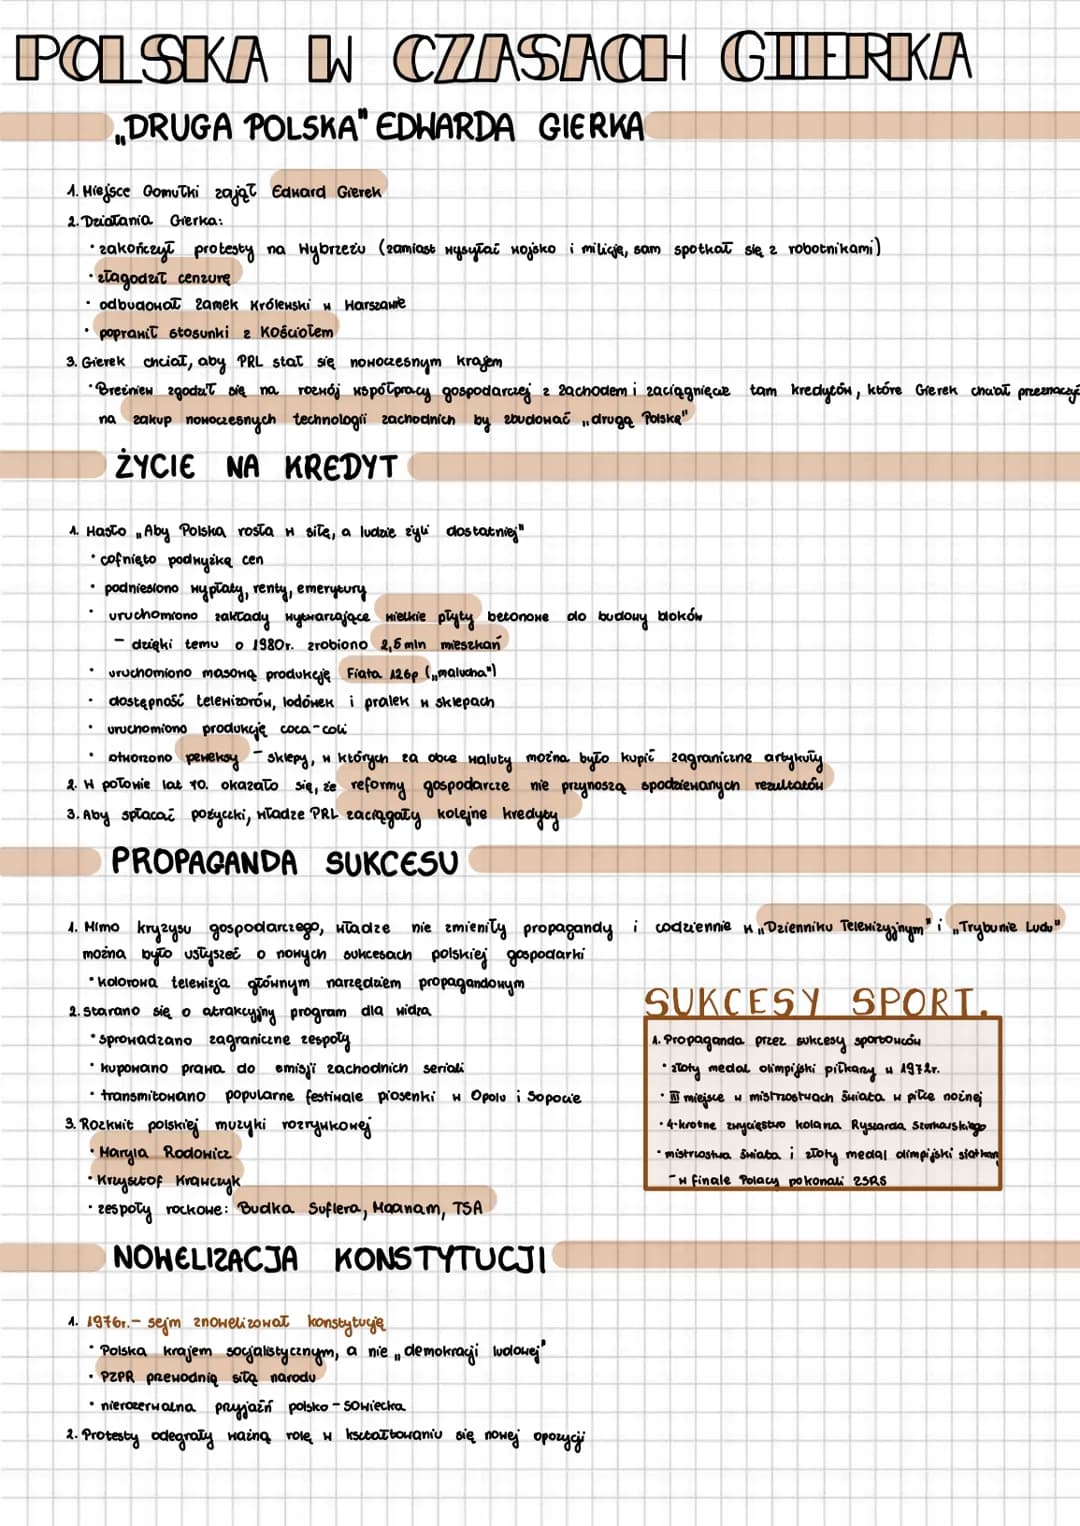 POLSKA W CZASACH GIERKA
„DRUGA POLSKA" EDWARDA GIERKA
1. Miejsce Gomułki zajął Edward Gierek
2. Działania Gierka:
• zakończył protesty na Wybrzeżu (zamiast wysyłać wojsko i milicję, sam spotkał się z robotnikami)
• złagodził cenzurę
• odbudował Zamek Królewski w Warszawie
• poprawił stosunki z Kościołem
3. Gierek chciał, aby PRL stał się nowoczesnym krajem
• Breżniew zgodził się na rozwój współpracy gospodarczej z Zachodem i zaciągnięcie tam kredytów, które Gierek chciał przeznaczyć
na zakup nowoczesnych technologii zachodnich by zbudować „drugą Polskę"
ŻYCIE NA KREDYT
1. Hasło „Aby Polska rosła w siłę, a ludzie żyli dostatniej"
• cofnięto podwyżkę cen
• podniesiono wypłaty, renty, emerytury
• uruchomiono zakłady wytwarzające wielkie płyty betonowe do budowy bloków
– dzięki temu o 1980r. zrobiono 2,5 mln mieszkań
• uruchomiono masową produkcję Fiata 126p („malucha")
• dostępność telewizorów, lodówek i pralek w sklepach
• uruchomiono produkcję coca-coli
• otworzono peweksy – sklepy, w których za obce waluty można było kupić zagraniczne artykuły
2. W połowie lat 70. okazało się, że reformy gospodarcze nie przynoszą spodziewanych rezultatów
3. Aby spłacać pożyczki, władze PRL zaciągały kolejne kredyty
PROPAGANDA SUKCESU
1. Mimo kryzysu gospodarczego, władze nie zmieniły propagandy i codziennie w „Dzienniku Telewizyjnym" i „Trybunie Ludu"
można było usłyszeć o nowych sukcesach polskiej gospodarki
• kolorowa telewizja głównym narzędziem propagandowym
2. starano się o atrakcyjny program dla widza
• sprowadzano zagraniczne zespoły
• kupowano prawa do emisji zachodnich seriali
• transmitowano popularne festiwale piosenki w Opolu i Sopocie
3. Rozkwit polskiej muzyki rozrywkowej
• Maryla Rodowicz
• Krzysztof Krawczyk
• zespoły rockowe: Budka Suflera, Maanam, TSA
SUKCESY SPORT.
1. Propaganda przez sukcesy sportowców
• złoty medal olimpijski piłkarzy w 1972r.
• III miejsce w mistrzostwach świata w piłce nożnej
• 4-krotne zwycięstwo kolarza Ryszarda Szurkowskiego
• mistrzostwa świata i złoty medal olimpijski siatkarzy
– w finale Polacy pokonali ZSRS
NOWELIZACJA KONSTYTUCJI
1. 1976r.– sejm znowelizował konstytucję
• Polska krajem socjalistycznym, a nie „demokracji ludowej"
• PZPR przewodnią siłą narodu
• nierozerwalna przyjaźń polsko – sowiecka
2. Protesty odegrały ważną rolę w kształtowaniu się nowej opozycji